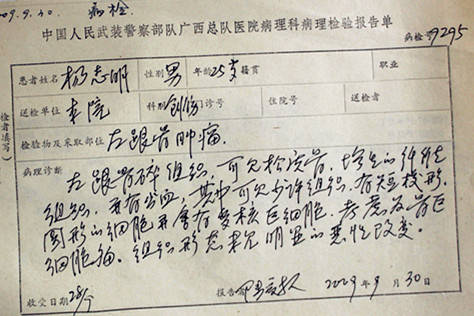 2009.9.30. 病检
中国人民武装警察部队广西总队医院病理科病理检验报告单
病检号 9295
患者姓名 杨志明 性别 男 年龄 25岁 籍贯 职业
送检单位 本院 科别 创伤 门诊号 住院号 送检者
检验物及采取部位 左跟骨肿瘤.
病理诊断
左跟骨碎组织,可见松质骨,增生的纤维
组织,并有出血,其中可见少许组织,有短梭形,
圆形的细胞并含有多核巨细胞,考虑为骨巨
细胞瘤.组织形态未见明显的恶性改变.
收受日期 28/9 报告者 2009年9月30日
(检者填写)